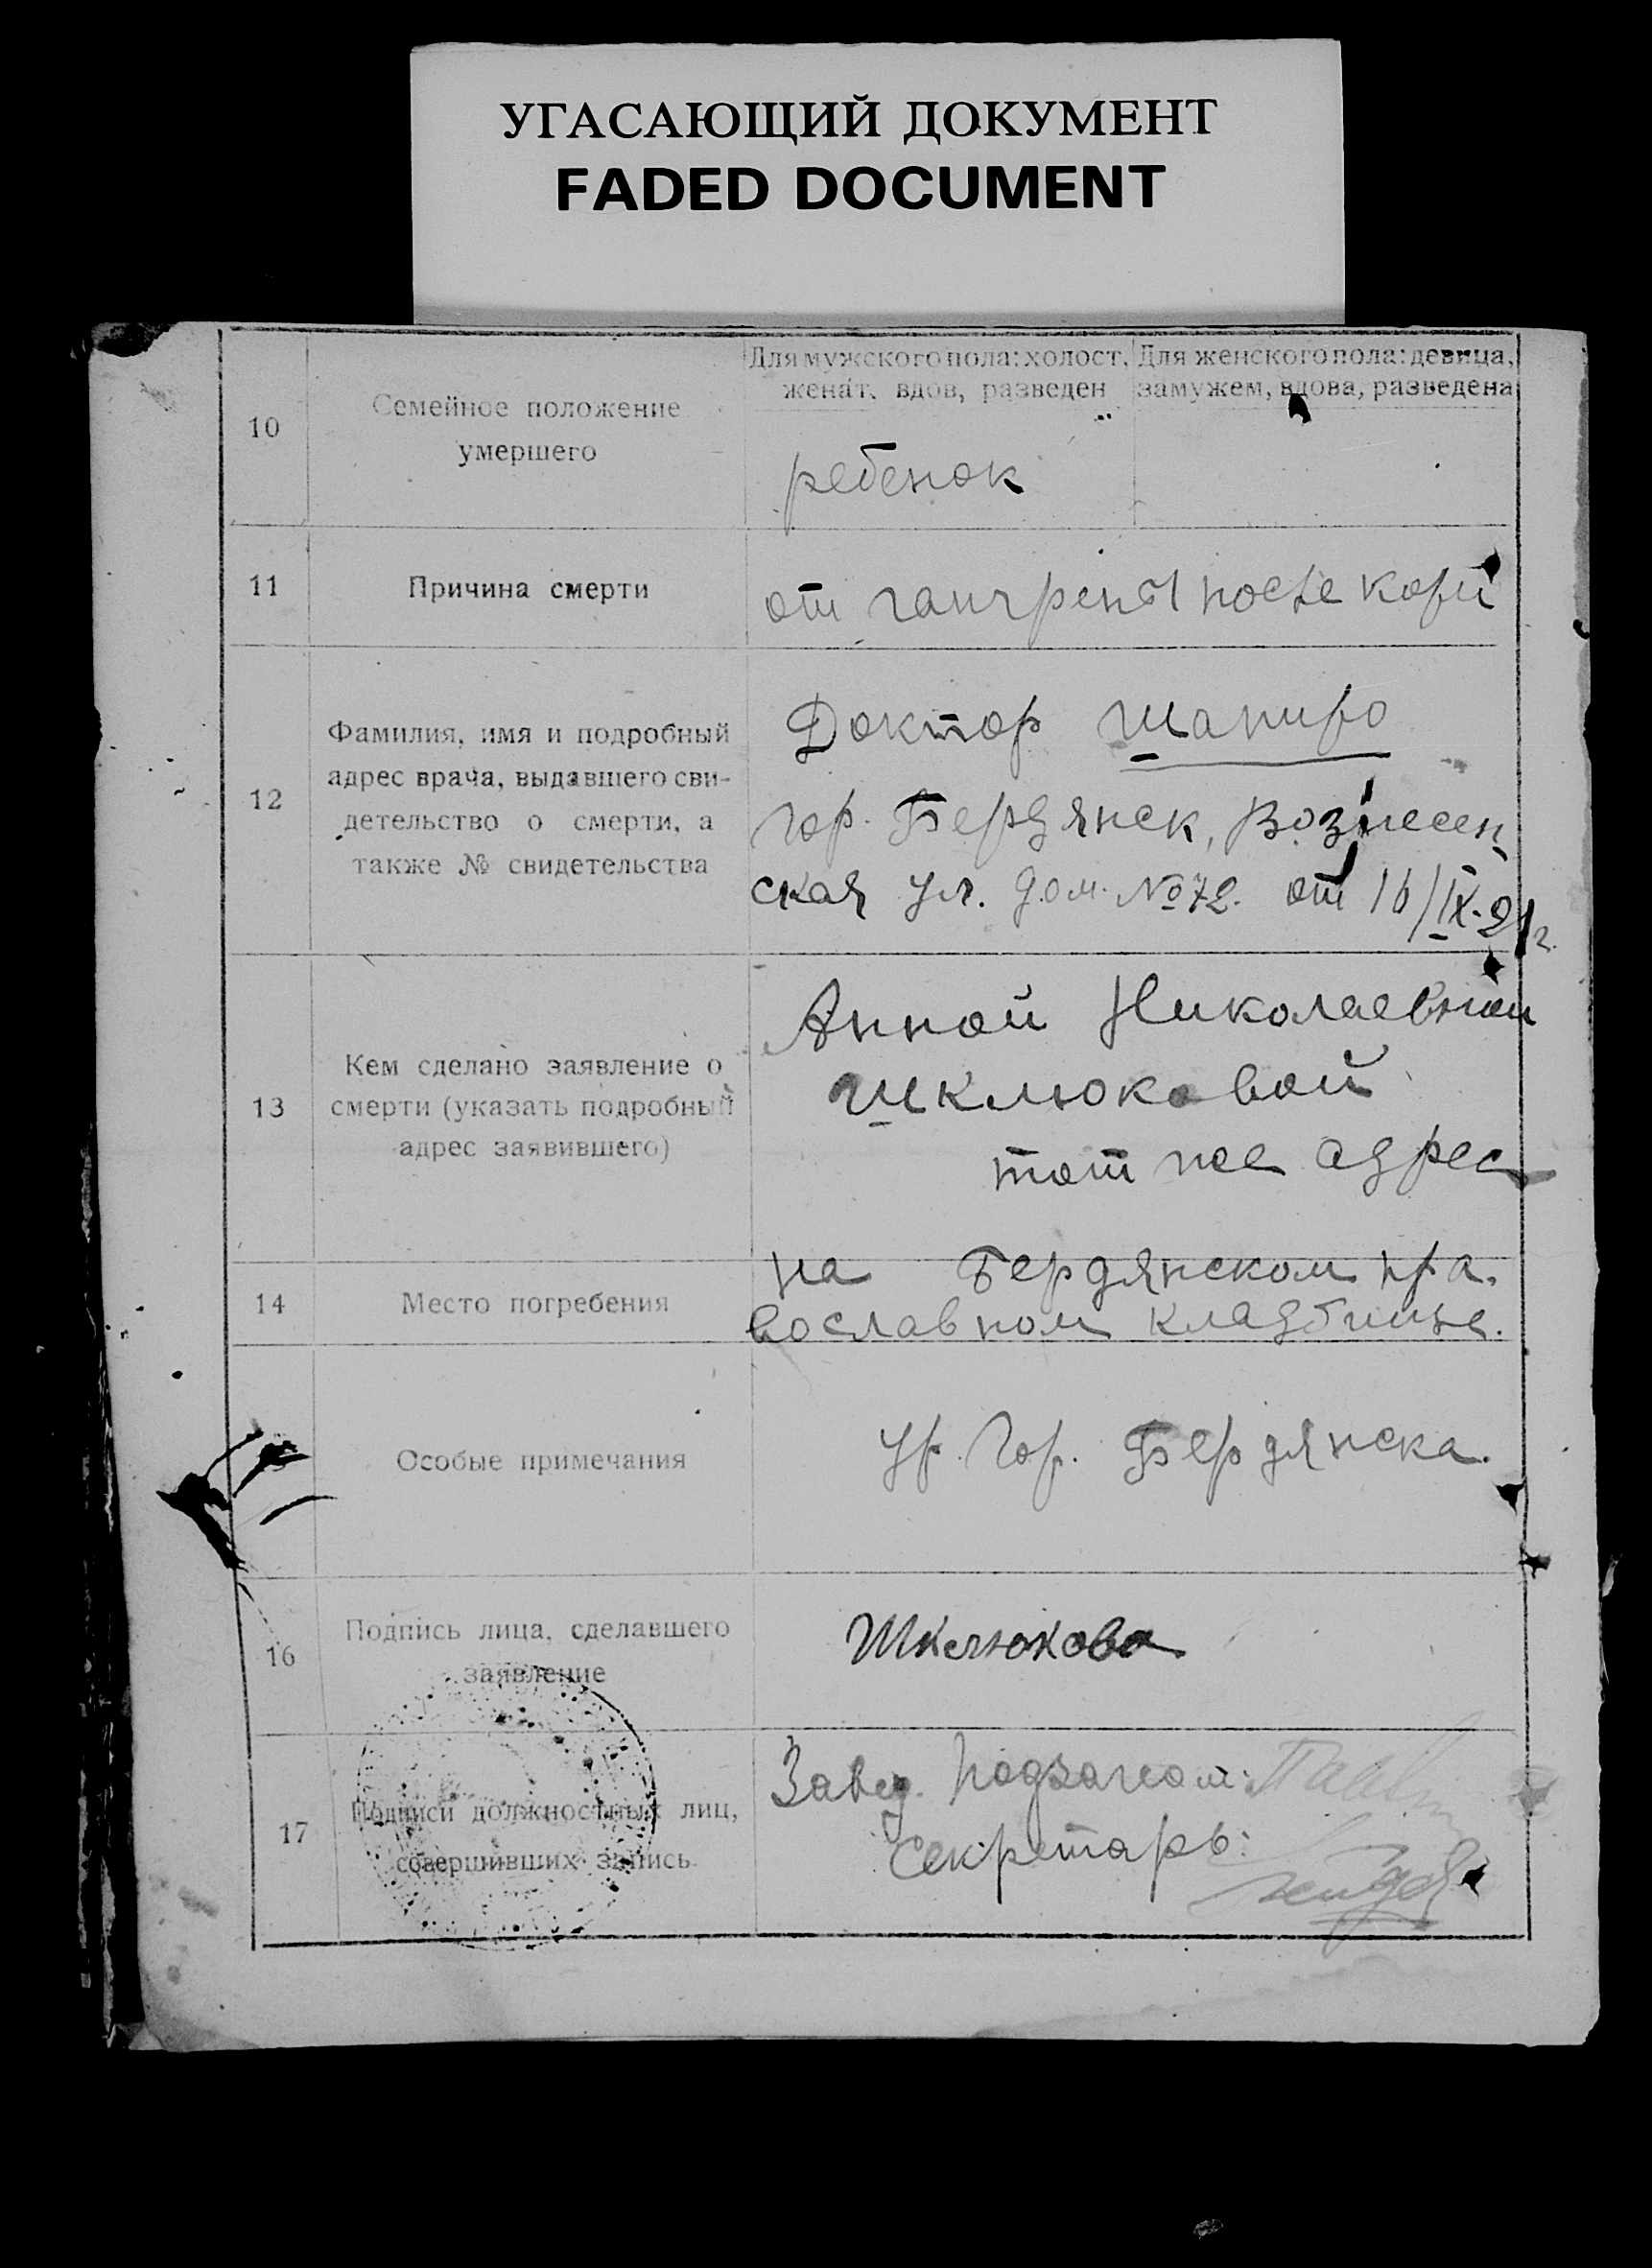 УГАСАЮЩИЙ ДОКУМЕНТ
FADED DOCUMENT
10
Семейное положение
умершего
Для мужского пола: холост,
женат, вдов, разведен
Для женского пола: девица,
замужем, вдова, разведена
ребенок
11
Причина смерти
от гангрены после кори
12
Фамилия, имя и подробный
адрес врача, выдавшего сви-
детельство о смерти, а
также № свидетельства
Доктор Шапиро
Гор. Бердянск, Вознесен
ская ул. дом №72. от 16/IX-21г.
13
Кем сделано заявление о
смерти (указать подробный
адрес заявившего)
Анной Николаевной
Шклюковой
тот же адрес
14
Место погребения
на Бердянском пра.
вославном кладбище.
Особые примечания
ур. Гор. Бердянска.
16
Подпись лица, сделавшего
заявление
Шклюкова
17
Подписи должностных лиц,
совершивших запись
Завед. Подзагсом:
Секретарь: